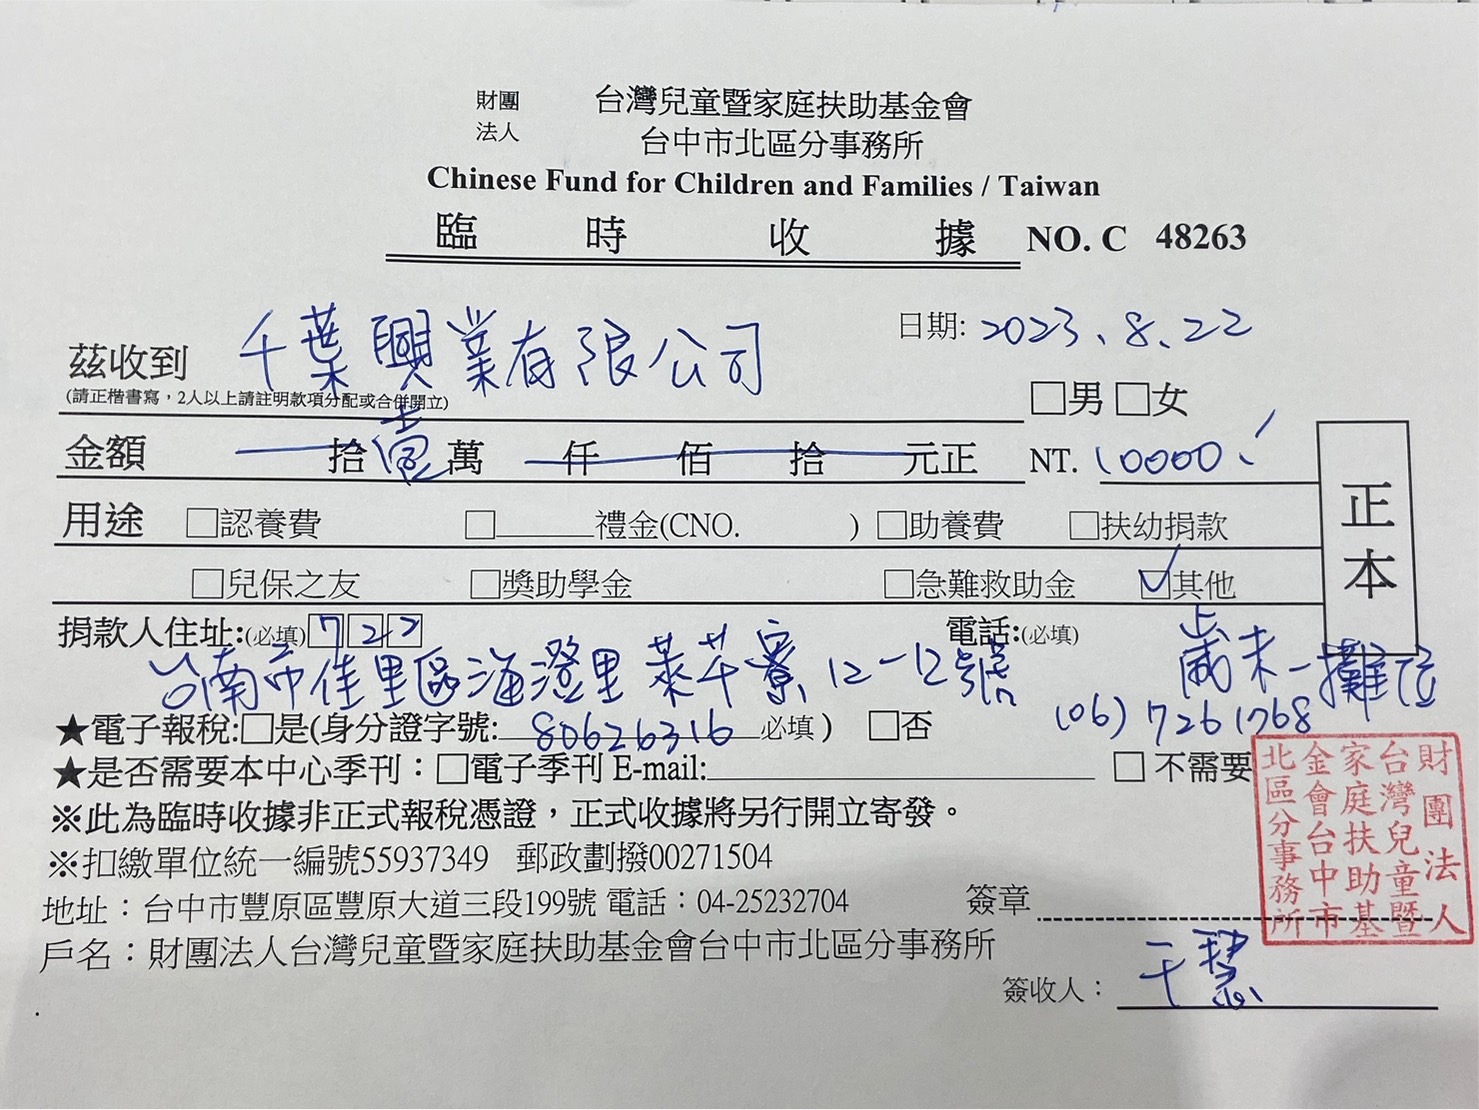 財團法人 台灣兒童暨家庭扶助基金會
台中市北區分事務所
Chinese Fund for Children and Families / Taiwan
臨時收據 NO. C 48263
日期: 2023.8.22
茲收到 千葉興業有限公司
(請正楷書寫，2人以上請註明款項分配或合併開立)
□男 □女
金額 拾壹萬 仟 佰 拾 元正 NT. 10000
正本
用途 □認養費 □______禮金(CNO. ) □助養費 □扶幼捐款
□兒保之友 □獎助學金 □急難救助金 ☑其他
捐款人住址:(必填) 722 電話:(必填)
歲末一攤位
台南市佳里區海澄里萊芊寮12-12號
(06) 7261768
★電子報稅:□是(身分證字號: 80626316 必填) □否
★是否需要本中心季刊：□電子季刊 E-mail: □ 不需要
※此為臨時收據非正式報稅憑證，正式收據將另行開立寄發。
※扣繳單位統一編號55937349 郵政劃撥00271504
地址：台中市豐原區豐原大道三段199號 電話：04-25232704 簽章
戶名：財團法人台灣兒童暨家庭扶助基金會台中市北區分事務所
簽收人：
財團法人
台灣兒童暨
家庭扶助基
金會台中市
北區分事務所